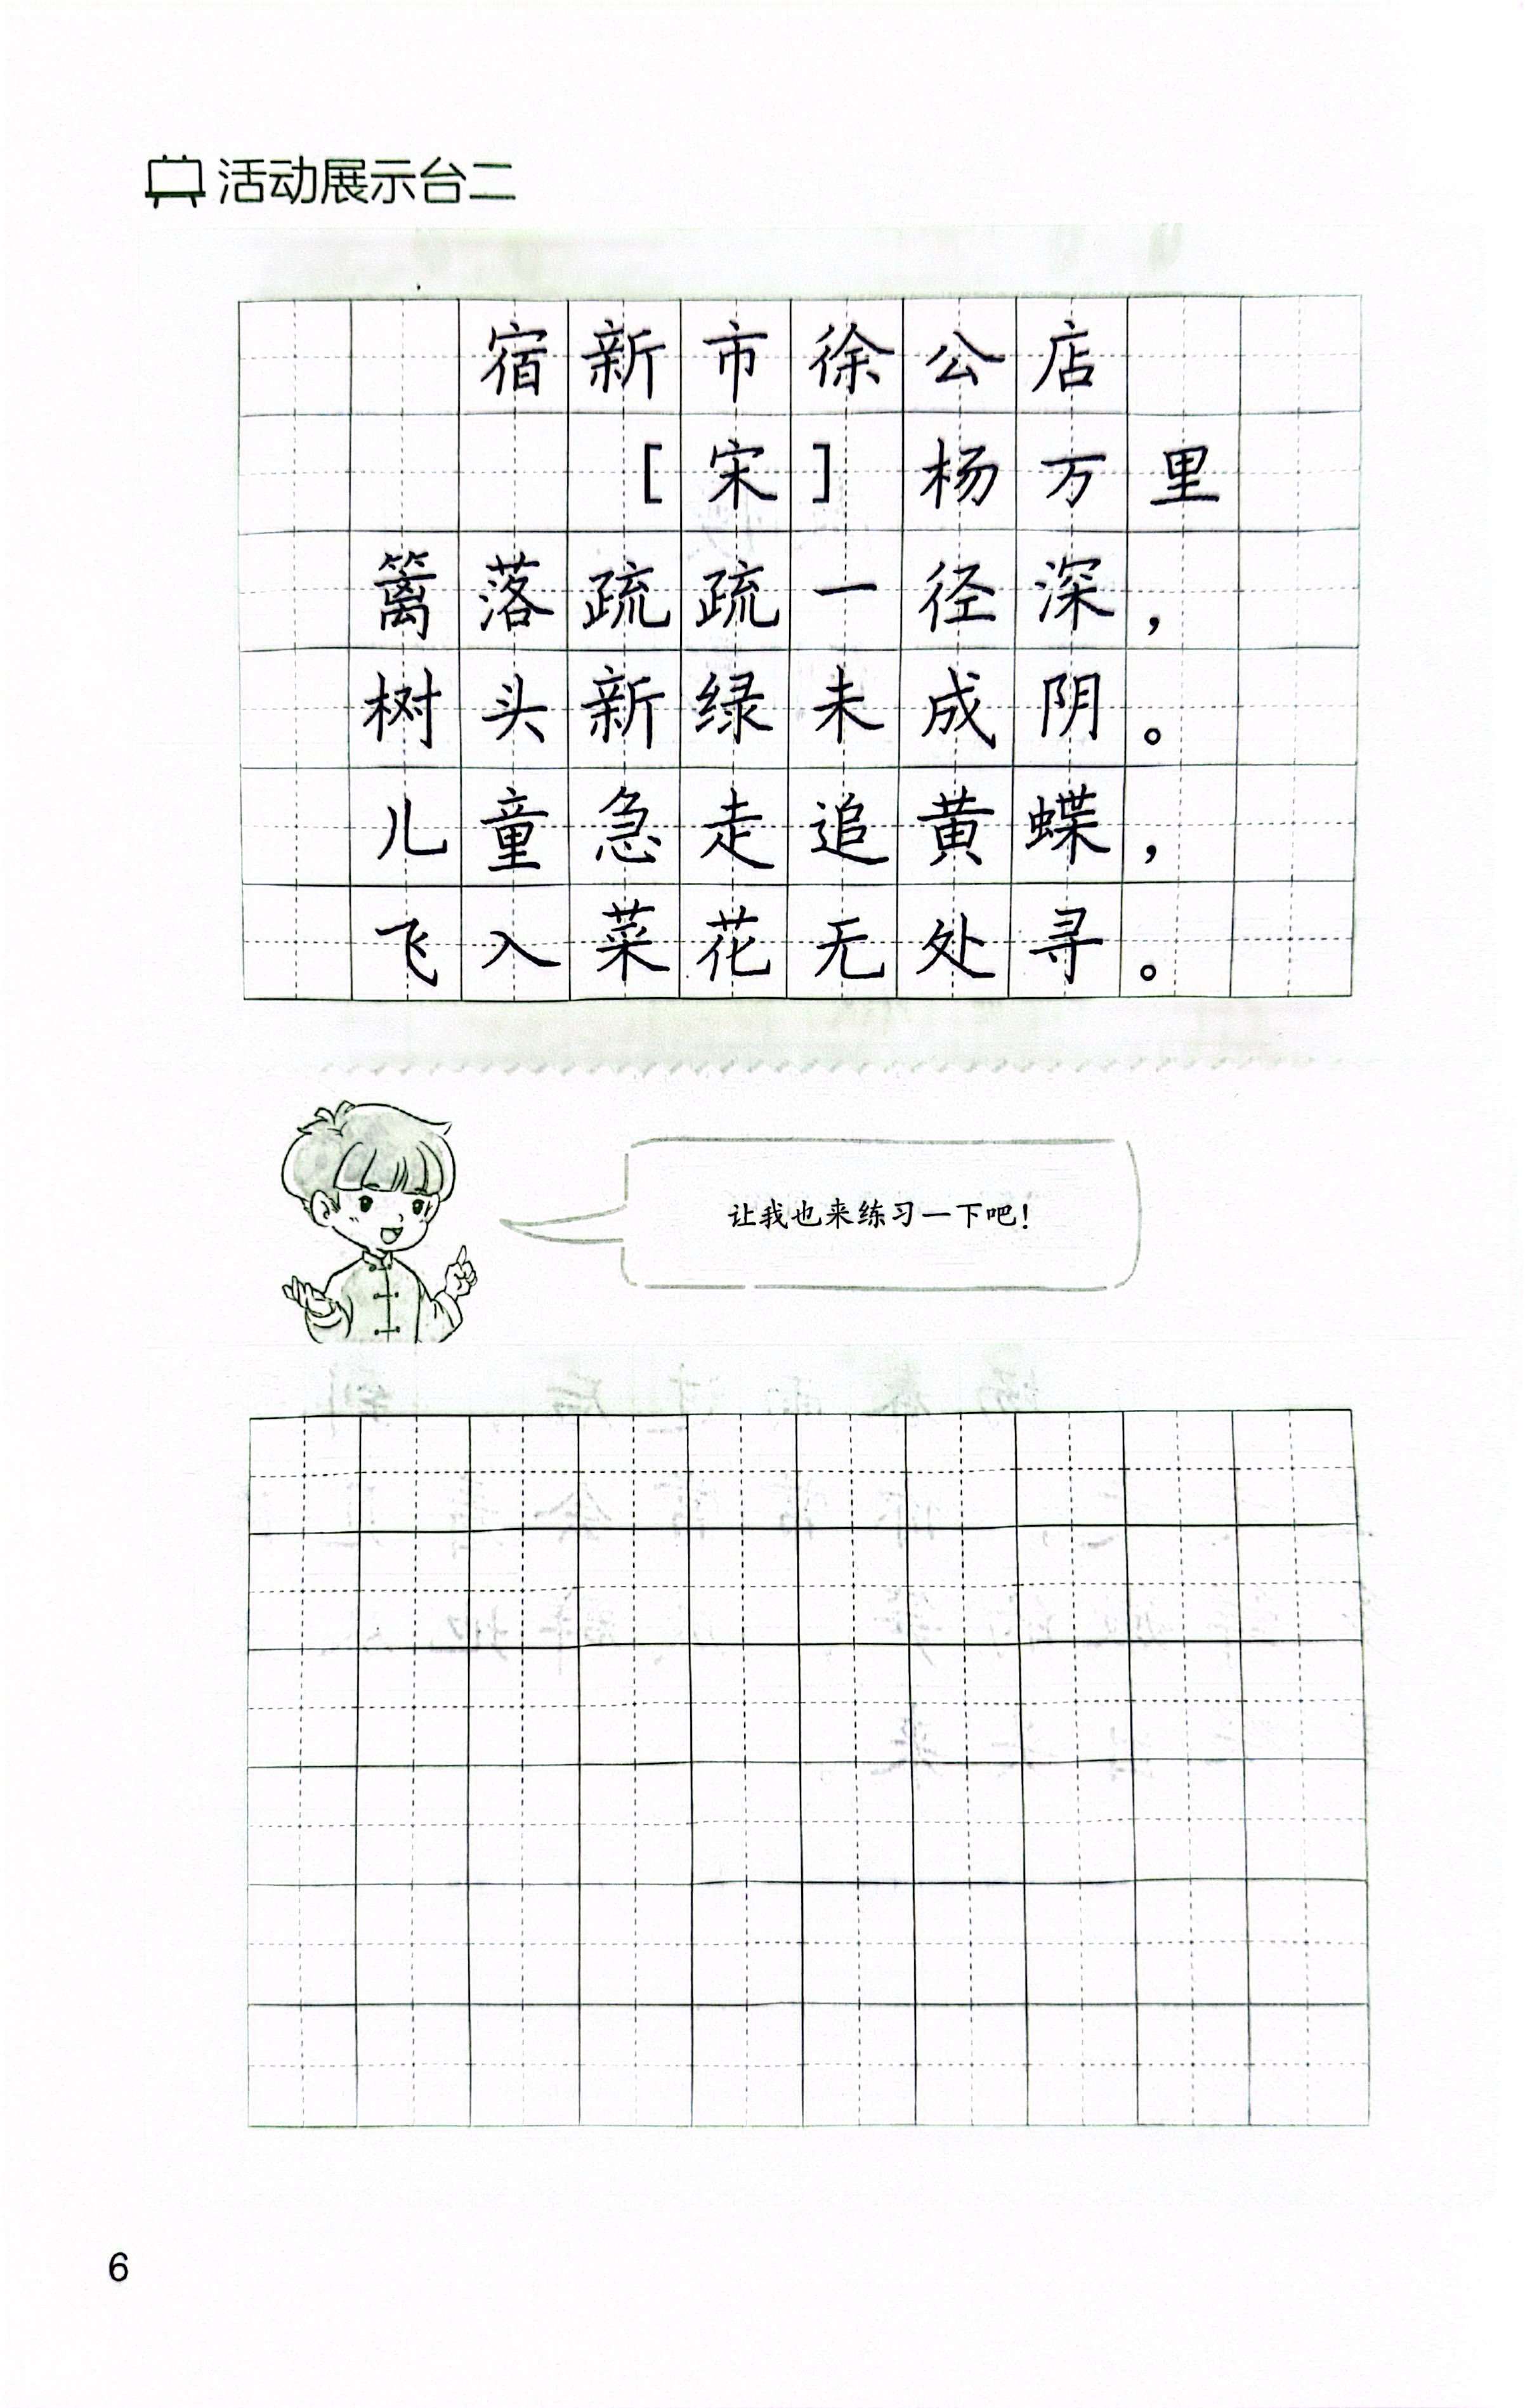 活动展示台二
宿新市徐公店
[宋] 杨万里
篱落疏疏一径深，
树头新绿未成阴。
儿童急走追黄蝶，
飞入菜花无处寻。
让我也来练习一下吧！
6